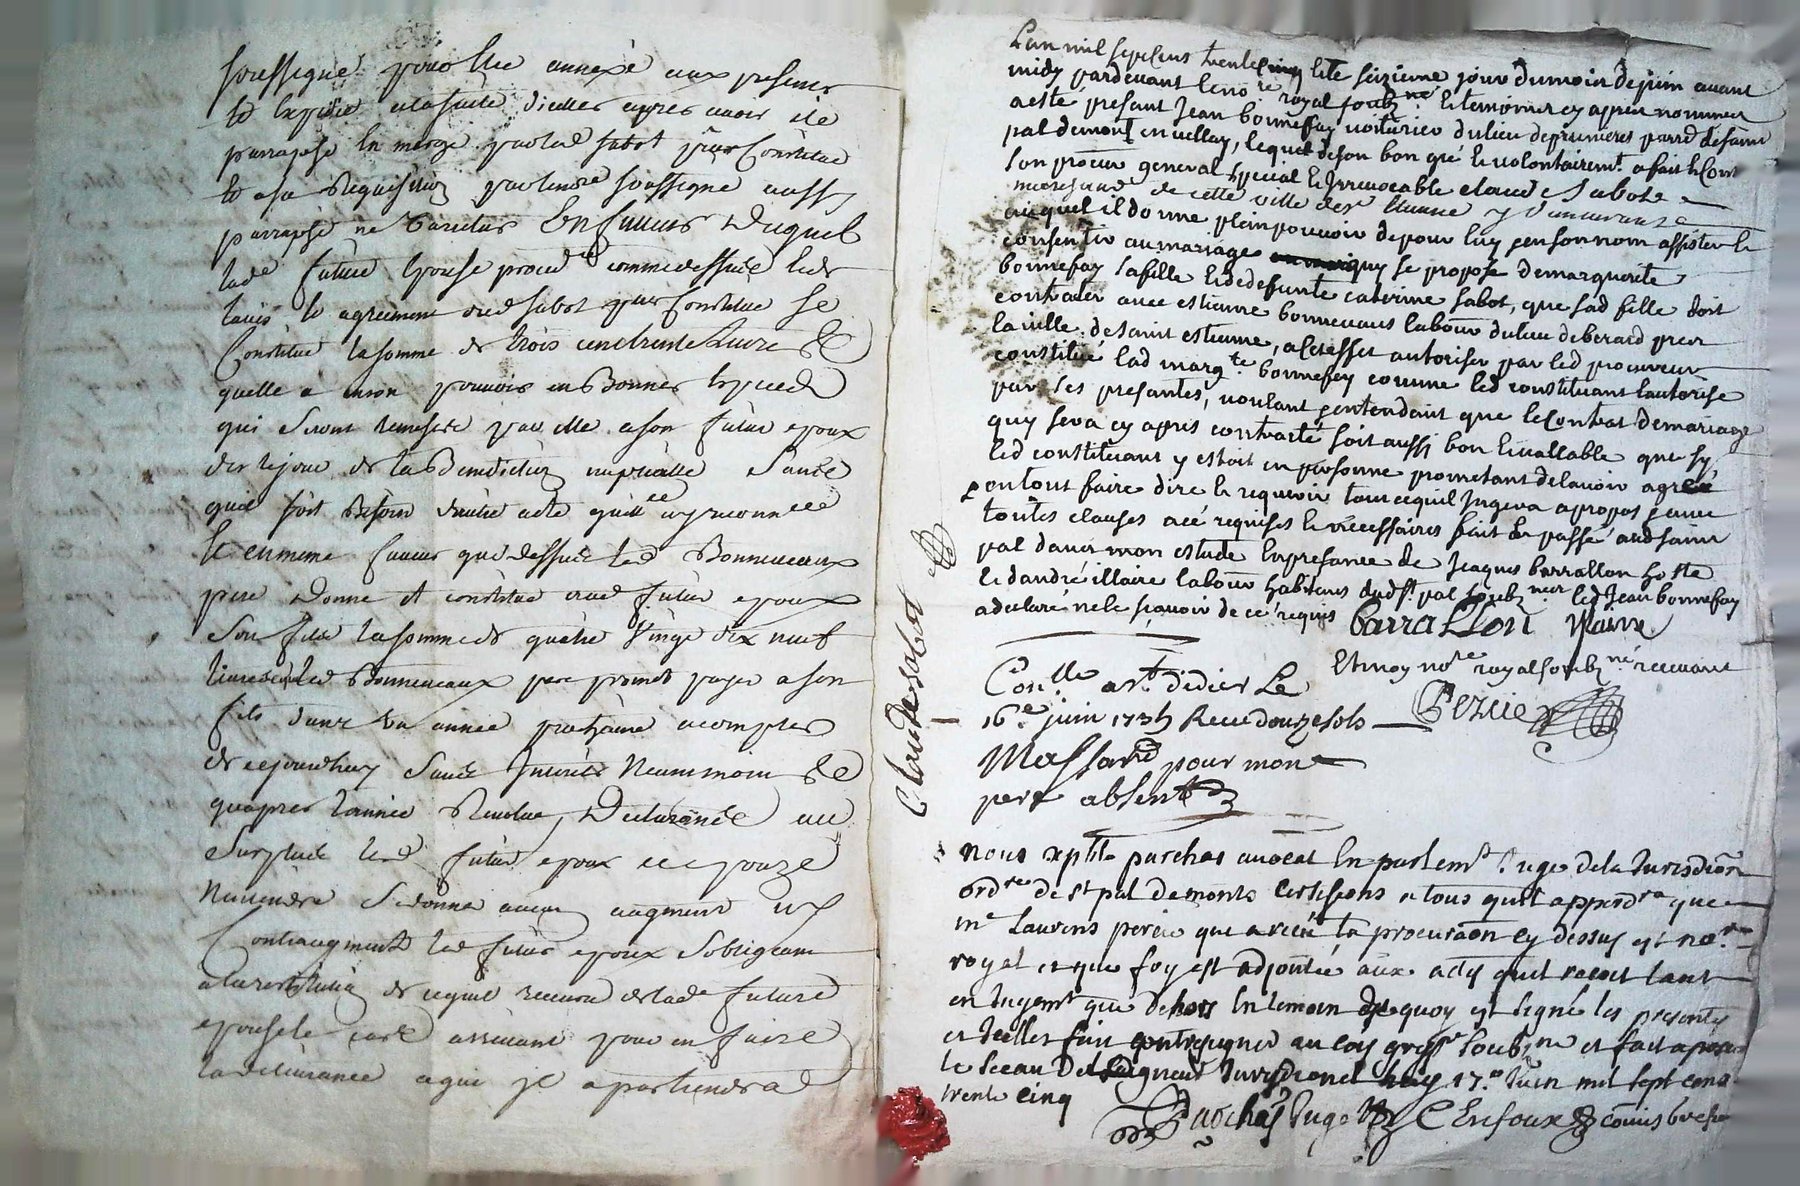 soussigné pour être annexé aux presentes
et expedié a la suitte d'icelles apres avoir été
parraphé en marge par led sabot procur constitué
et a sa Requisition par le no.re soussigné aussy
parraphé ne varietur En faveur Duquel
lad.e future épouse procédant comme dessus de
l'avis et agreement dud sabot procur constitué se
Constitue la somme de trois cent trente Livres &
quelle a en son pouvoir en Bonnes especes
qui seront remises par elle a son futur epoux
des le jour de la Benediction nuptialle Sans
quil soit Besoin d'autre acte quittance ny reconn.ce
Et en meme faveur que dessus led Bonnevaux
pere Donne et constitue aud futur epoux
Son fils la somme de quatre Vingt dix neuf
livres led Bonnevaux pere promet payer a son
fils dans un année prochaine a compter
de cejourdhuy Sans Interets Neanmoins &
quapres l'année Revolue, Declarants au
Surplus led futur epoux et epouze
Nentendre Se donner aucun augment ny
Contraugment led futur epoux S'obligeant
a la restitution de ce quil recevra de lad.e future
epouse le cas arrivant pour en faire
la delivrance a qui il apartiendra
Claude sabot
L'an mil sept cens trente cinq et le seizieme jour du mois de juin avant
midy pardevant le no.re royal soubz.né et temoins cy apres nommes
a esté présant Jean bonnefoy voiturier du lieu de prunieres parr.e de saint
pal de mont en vellay, lequel de son bon gré et volontairem.t a fait et const
son procur general special et Irrevocable claude sabot
marchand de cette ville de st etienne y demeurant
auquel il donne plein pouvoir de pour luy et en son nom assister et
consentir au mariage quy se propose de marguerite
bonnefoy sa fille et de defunte caterine sabot, que sad fille doit
contracter avec estienne bonnevaux labour du lieu de berard pres
la ville de saint estienne, a l'effet autoriser par led procureur
constitué lad marg.te bonnefoy comme led constituant l'autorise
par ses presantes, voulant et entendant que le contrat de mariage
quy sera cy apres contracté soit aussi bon et vallable que sy
led constituant y estoit en personne prometant de l'avoir agréé
et en tout faire dire et requerir tout ce quil Jugera a propos et avec
toutes clauses a cé requises et nécessaires fait et passé aud saint
pal dans mon estude En presance de Jacques barrallon hoste
et d'andré illaire labour habitans dud st pal soubz.nes led Jean bonnefoy
a declaré ne le sçavoir de cé requis Barrallon
Et moy no.re royal soubz.né recevant
Con.lle a st didier Le
16.e juin 1735 Receu douze sols
Massard pour mon
pere absent
Pezeie
nous parchas avocat En parlem.t Juge de la Jurisdiction
ord.re de st pal de monts certiffions a tous quil appard.ra que
m.e Laurens pereie que a receu la procuration cy dessus est no.re
royal et que foy est adjoutée aux actes quil recoit tant
en Jugem.t que dehors En temoin de quoy est signé les presentes
et icelles fait contresigner au comis greff.r soubz.né et fait aposer
le sceau de Seigneur Jurisdictionel huy 17.e Juin mil sept cens
trente cinq
Parchas Juge C Enfoux comis greffier